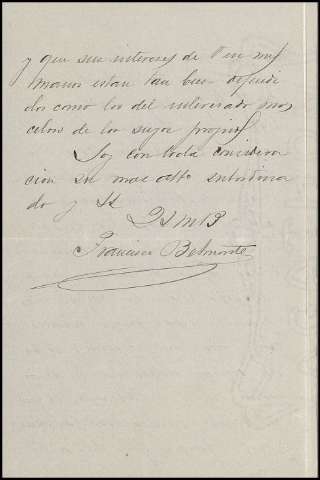 y que sus intereses de V en mis
manos estan tan bien defendi
dos como los del interesado mas
celoso de los suyos propios
Soy con toda considera
cion su mas atto subordina
do y SS
QSMB
Francisco Belmonte